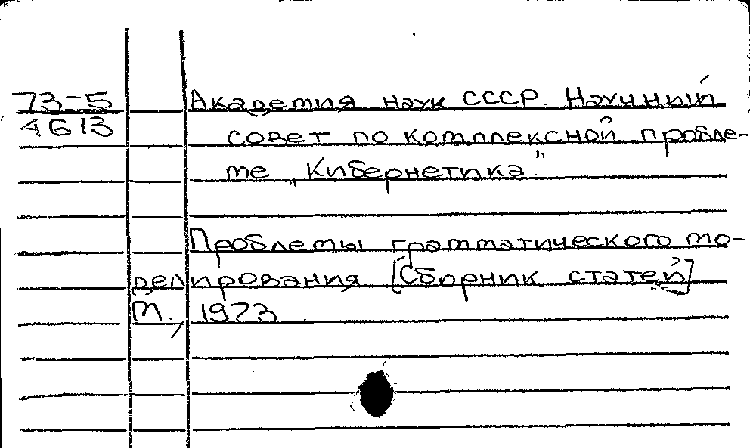 73-5 Академия наук СССР. Научный
4613 совет по комплексной пробле-
ме „Кибернетика"
Проблемы грамматического мо-
делирования [Сборник статей]
М., 1973